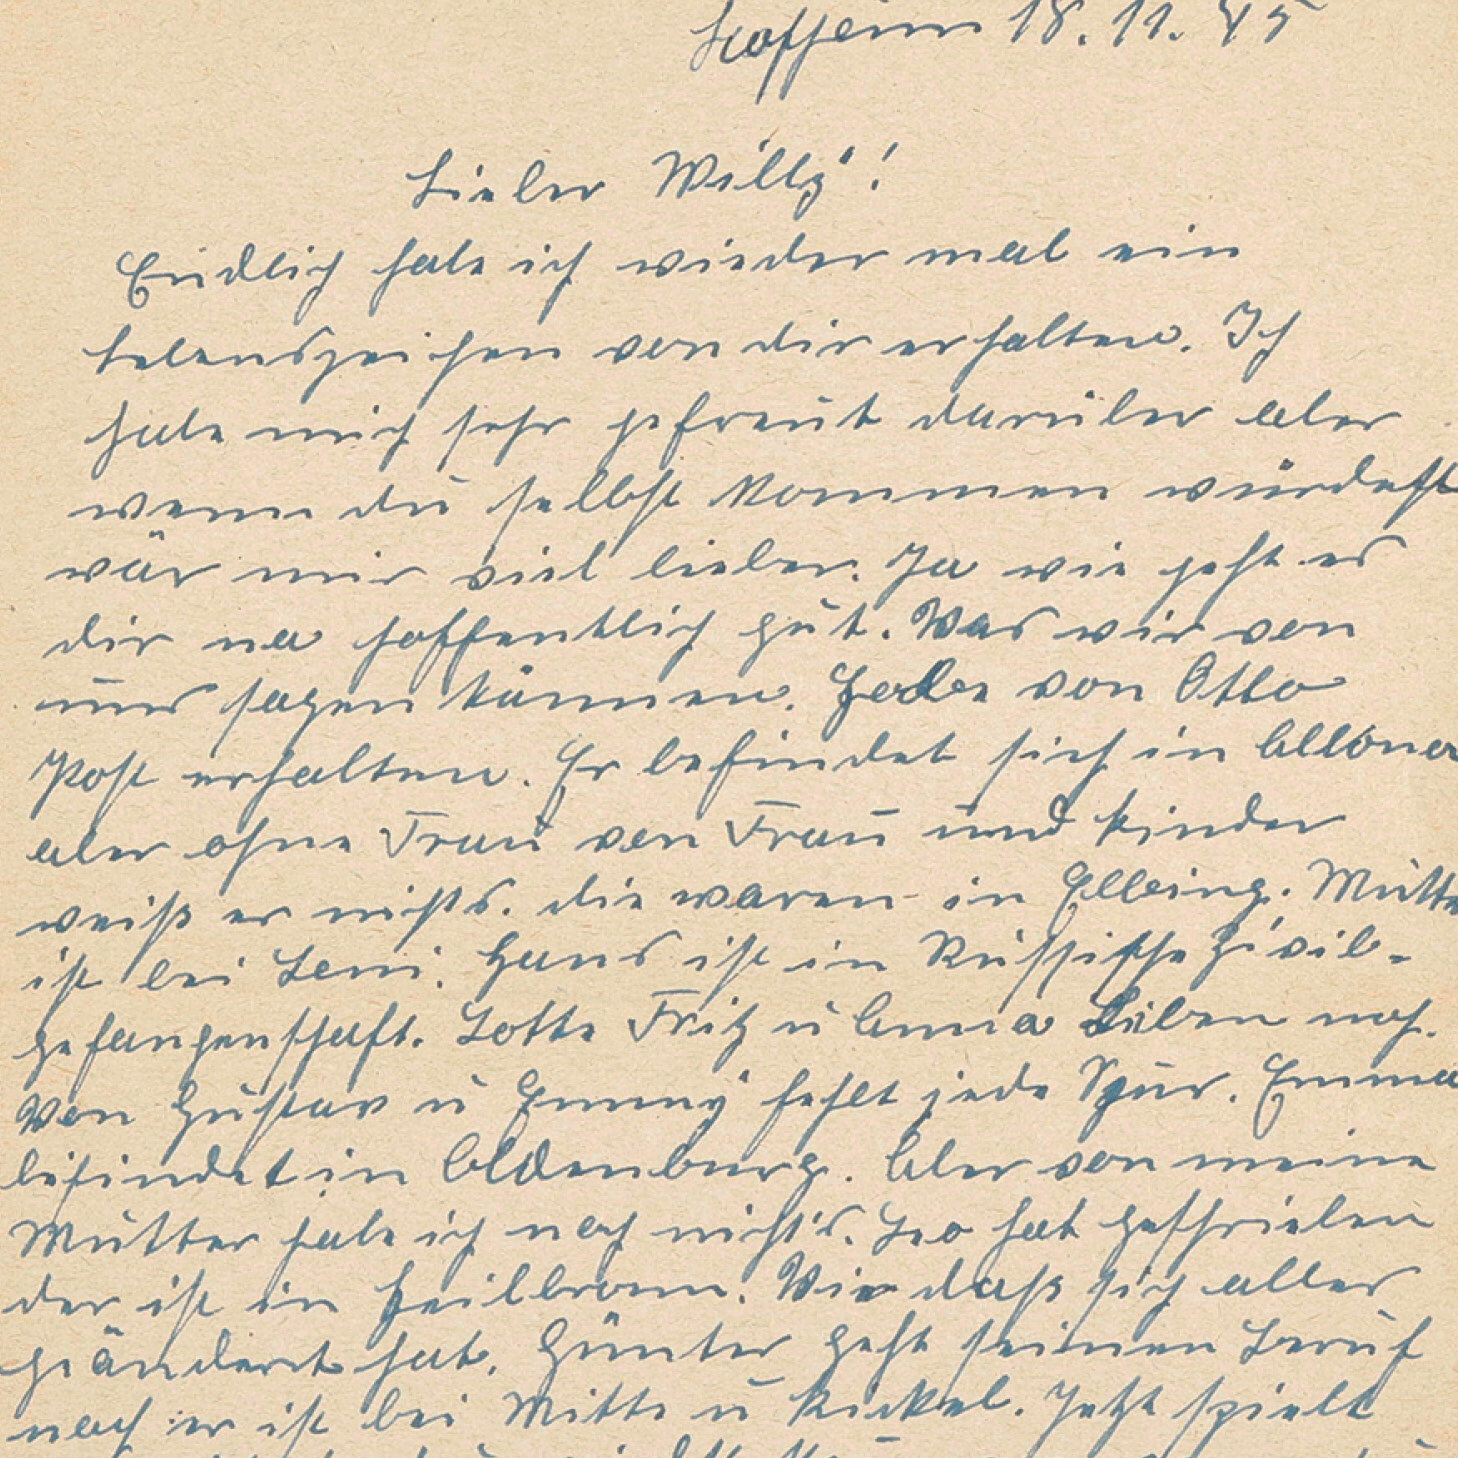 18.11.45
Lieber Willy!
Endlich habe ich wieder mal ein
Lebenszeichen von dir erhalten. Ich
habe mich sehr gefreut darüber aber
wenn du selbst kommen würdest
wär mir viel lieber. Ja wie geht es
dir na hoffentlich gut. Was wir von
uns sagen können. Habe von Otto
Post erhalten. Er befindet sich in Altona
aber ohne Frau von Frau und Kinder
weiß er nichts. die waren in Elbing. Mutter
ist bei Leni. Hans ist in Russische Zivil-
gefangenschaft. Lotte Fritz u Anna leben noch.
Von Gustav u Emmy fehlt jede Spur. Emma
befindet in Oldenburg. Aber von meine
Mutter habe ich noch nichts. Leo hat geschrieben
der ist in Heilbronn. Wie daß sich alles
geändert hat. Günter geht seinen Beruf
nach er ist bei Mitte u Kickel. Jetzt spielt